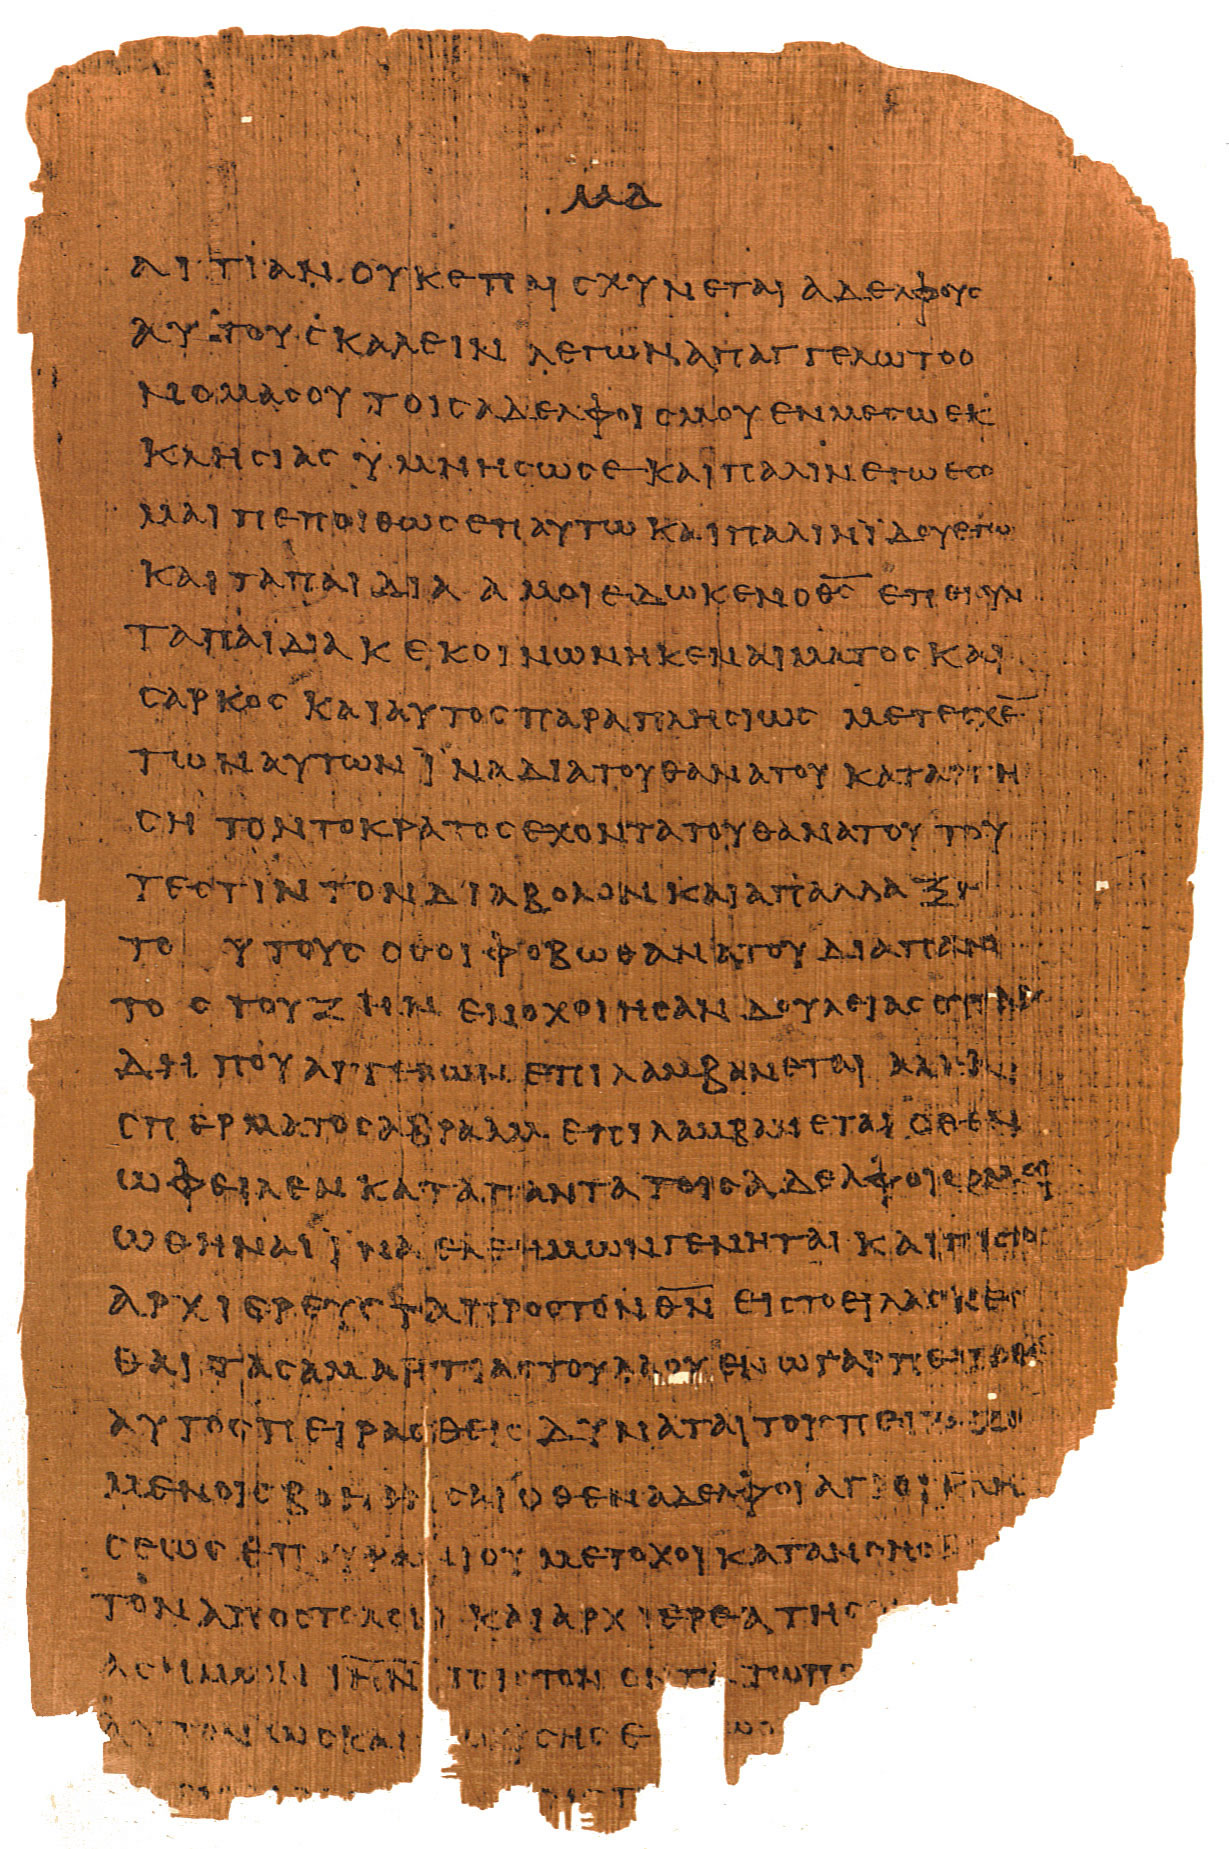 ΜΔ
ΑΙΤΙΑΝ ΟΥΚ ΕΠΑΙΣΧΥΝΕΤΑΙ ΑΔΕΛΦΟΥΣ
ΑΥΤΟΥΣ ΚΑΛΕΙΝ ΛΕΓΩΝ ΑΠΑΓΓΕΛΩ ΤΟ Ο
ΝΟΜΑ ΣΟΥ ΤΟΙΣ ΑΔΕΛΦΟΙΣ ΜΟΥ ΕΝ ΜΕΣΩ ΕΚ
ΚΛΗΣΙΑΣ ΫΜΝΗΣΩ ΣΕ ΚΑΙ ΠΑΛΙΝ ΕΓΩ ΕΣΟ
ΜΑΙ ΠΕΠΟΙΘΩΣ ΕΠ ΑΥΤΩ ΚΑΙ ΠΑΛΙΝ ΪΔΟΥ ΕΓΩ
ΚΑΙ ΤΑ ΠΑΙΔΙΑ Α ΜΟΙ ΕΔΩΚΕΝ Ο Θ̅Σ̅ ΕΠΕΙ ΟΥΝ
ΤΑ ΠΑΙΔΙΑ ΚΕΚΟΙΝΩΝΗΚΕΝ ΑΙΜΑΤΟΣ ΚΑΙ
ΣΑΡΚΟΣ ΚΑΙ ΑΥΤΟΣ ΠΑΡΑΠΛΗΣΙΩΣ ΜΕΤΕΣΧΕ̅
ΤΩΝ ΑΥΤΩΝ ΪΝΑ ΔΙΑ ΤΟΥ ΘΑΝΑΤΟΥ ΚΑΤΑΡΓΗ
ΣΗ ΤΟΝ ΤΟ ΚΡΑΤΟΣ ΕΧΟΝΤΑ ΤΟΥ ΘΑΝΑΤΟΥ ΤΟΥ
ΤΕΣΤΙΝ ΤΟΝ ΔΙΑΒΟΛΟΝ ΚΑΙ ΑΠΑΛΛΑΞΗ
ΤΟΥΤΟΥΣ ΟΣΟΙ ΦΟΒΩ ΘΑΝΑΤΟΥ ΔΙΑ ΠΑΝ
ΤΟΣ ΤΟΥ ΖΗΝ ΕΝΟΧΟΙ ΗΣΑΝ ΔΟΥΛΕΙΑΣ ΟΥ ΓΑΡ
ΔΗΠΟΥ ΑΓΓΕΛΩΝ ΕΠΙΛΑΜΒΑΝΕΤΑΙ ΑΛΛΑ
ΣΠΕΡΜΑΤΟΣ ΑΒΡΑΑΜ ΕΠΙΛΑΜΒΑΝΕΤΑΙ ΟΘΕΝ
ΩΦΕΙΛΕΝ ΚΑΤΑ ΠΑΝΤΑ ΤΟΙΣ ΑΔΕΛΦΟΙΣ ΟΜΟΙ
ΩΘΗΝΑΙ ΪΝΑ ΕΛΕΗΜΩΝ ΓΕΝΗΤΑΙ ΚΑΙ ΠΙΣΤΟΣ
ΑΡΧΙΕΡΕΥΣ ΤΑ ΠΡΟΣ ΤΟΝ Θ̅Ν̅ ΕΙΣ ΤΟ ΕΙΛΑΣΚΕΣ
ΘΑΙ ΤΑΣ ΑΜΑΡΤΙΑΣ ΤΟΥ ΛΑΟΥ ΕΝ Ω ΓΑΡ ΠΕΠΟΝΘΕ
ΑΥΤΟΣ ΠΕΙΡΑΣΘΕΙΣ ΔΥΝΑΤΑΙ ΤΟΙΣ ΠΕΙΡΑΖΟ
ΜΕΝΟΙΣ ΒΟΗΘΗΣΑΙ ΟΘΕΝ ΑΔΕΛΦΟΙ ΑΓΙΟΙ ΚΛΗ
ΣΕΩΣ ΕΠΟΥΡΑΝΙΟΥ ΜΕΤΟΧΟΙ ΚΑΤΑΝΟΗΣ
ΤΟΝ ΑΠΟΣΤΟΛΟΝ ΚΑΙ ΑΡΧΙΕΡΕΑ ΤΗΣ
ΗΜΩΝ Ι̅Η̅Ν̅ ΠΙΣΤΟΝ ΟΝΤΑ ΤΩ ΠΟ
ΑΥΤΟΝ ΩΣ ΚΑΙ ΜΩΥΣΗΣ Ε